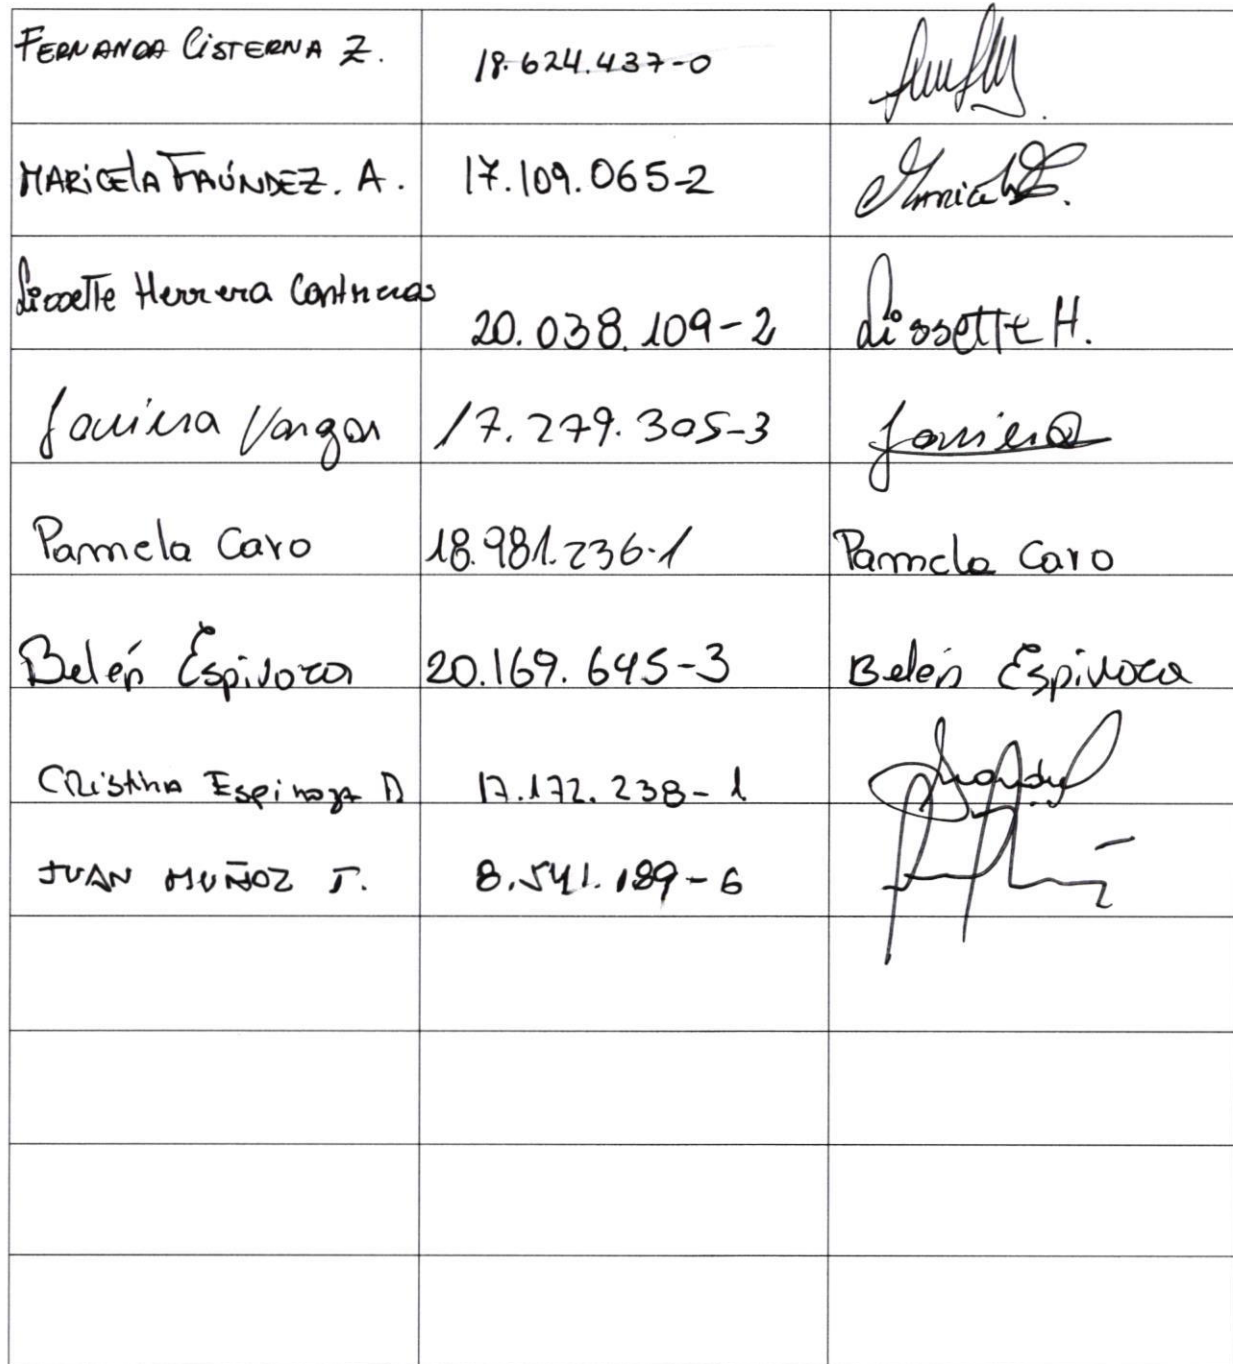 FERNANDA CISTERNA Z. 18.624.437-0
MARICELA FAÚNDEZ. A. 17.109.065-2
Lissette Herrera Contreras 20.038.109-2 Lissette H.
Javiera Vargas 17.279.305-3 Javiera
Pamela Caro 18.981.236-1 Pamela Caro
Belén Espinoza 20.169.645-3 Belén Espinoza
Cristina Espinoza D 17.172.238-1
JUAN MUÑOZ T. 8.541.189-6